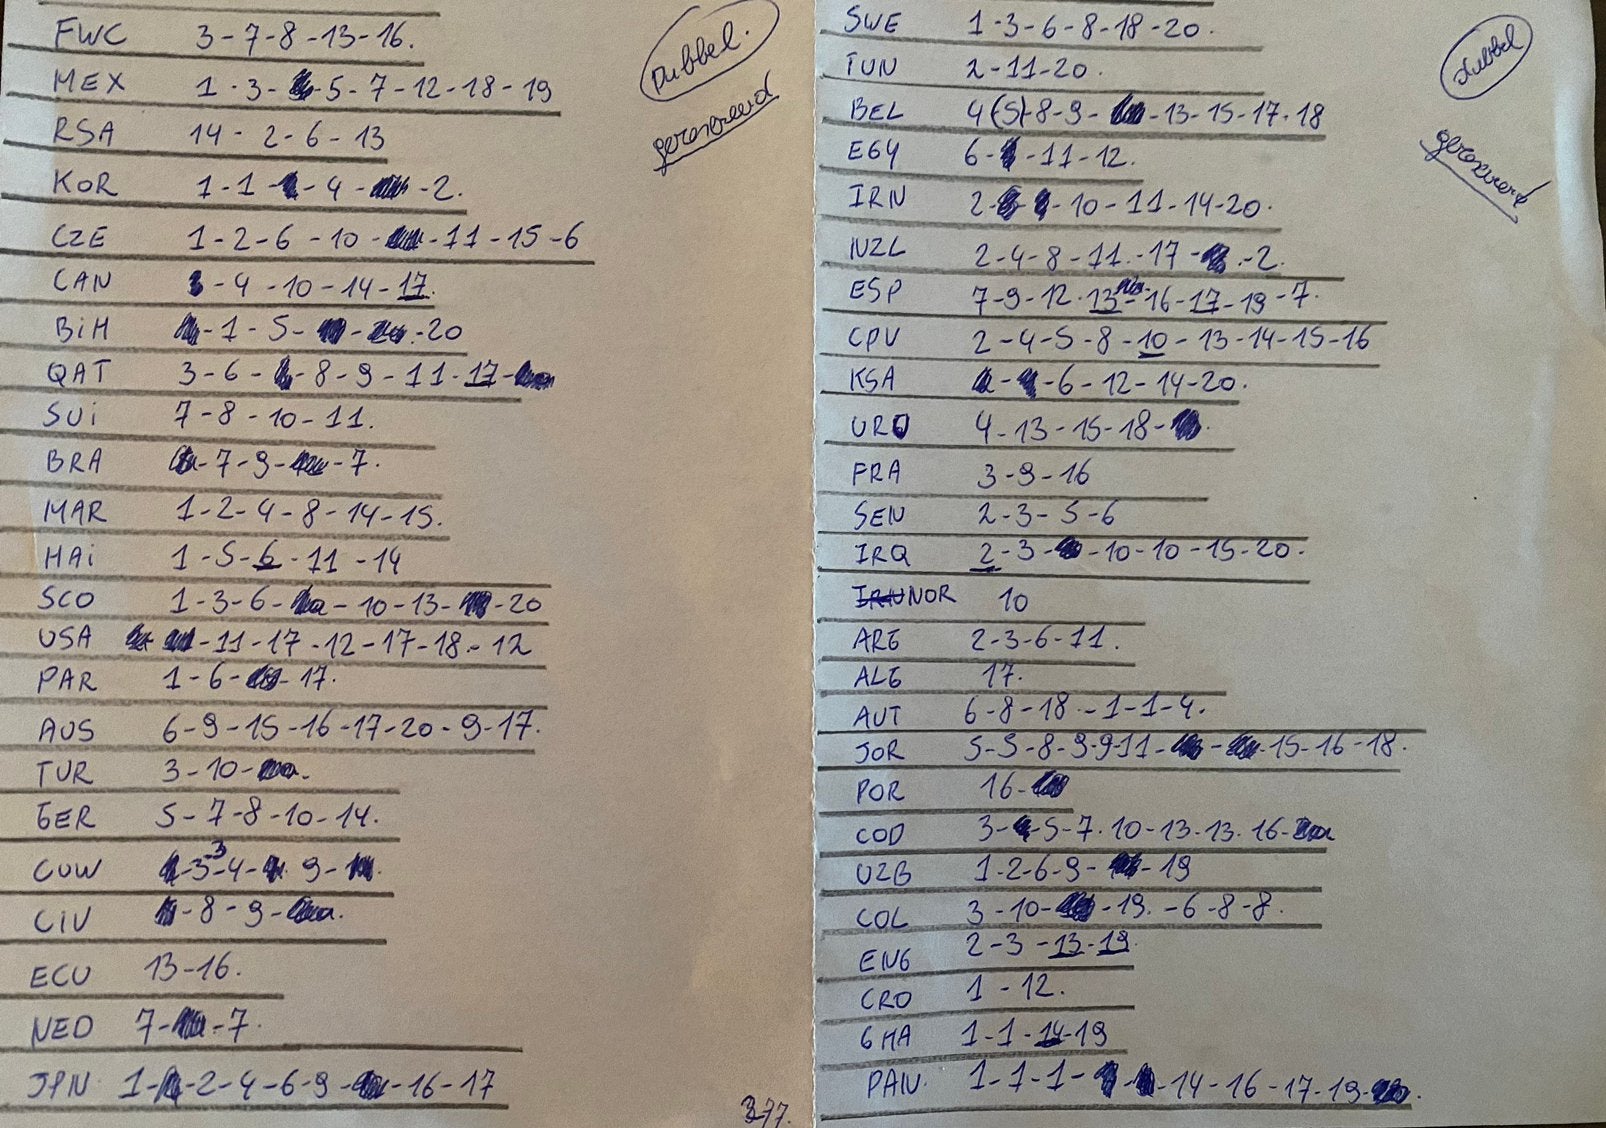 FWC 3-7-8-13-16.
Dubbel.
MEX 1-3-5-7-12-18-19
gereserveerd
RSA 14-2-6-13
KOR 1-1-4-2.
CZE 1-2-6-10-11-15-6
CAN 4-10-14-17.
BiH 1-5-20
QAT 3-6-8-9-11-17-
SUi 7-8-10-11.
BRA 7-9-7.
MAR 1-2-4-8-14-15.
HAi 1-5-6-11-14
SCO 1-3-6-10-13-20
USA 11-17-12-17-18-12
PAR 1-6-17.
AUS 6-9-15-16-17-20-9-17.
TUR 3-10-
GER 5-7-8-10-14.
CUW 3-3-4-9-
CiV 8-9-
ECU 13-16.
NED 7-7.
JPN 1-2-4-6-9-16-17
377.
SWE 1-3-6-8-18-20.
dubbel
TUN 2-11-20.
BEL 4(5)-8-9-13-15-17-18
EGY 6-11-12.
gereserveerd
IRN 2-10-11-14-20.
NZL 2-4-8-11-17-2.
ESP 7-9-12-13-16-17-19-7.
CPV 2-4-5-8-10-13-14-15-16
KSA 6-12-14-20.
URU 4-13-15-18-
FRA 3-9-16
SEN 2-3-5-6
IRQ 2-3-10-10-15-20-
NOR 10
ARG 2-3-6-11.
ALG 17.
AUT 6-8-18-1-1-4.
JOR 5-5-8-9-9-11-15-16-18.
POR 16-
COD 3-5-7-10-13-13-16-
UZB 1-2-6-9-19
COL 3-10-19.-6-8-8.
ENG 2-3-13-19.
CRO 1-12.
GHA 1-1-14-19
PAN. 1-1-1-14-16-17-19-